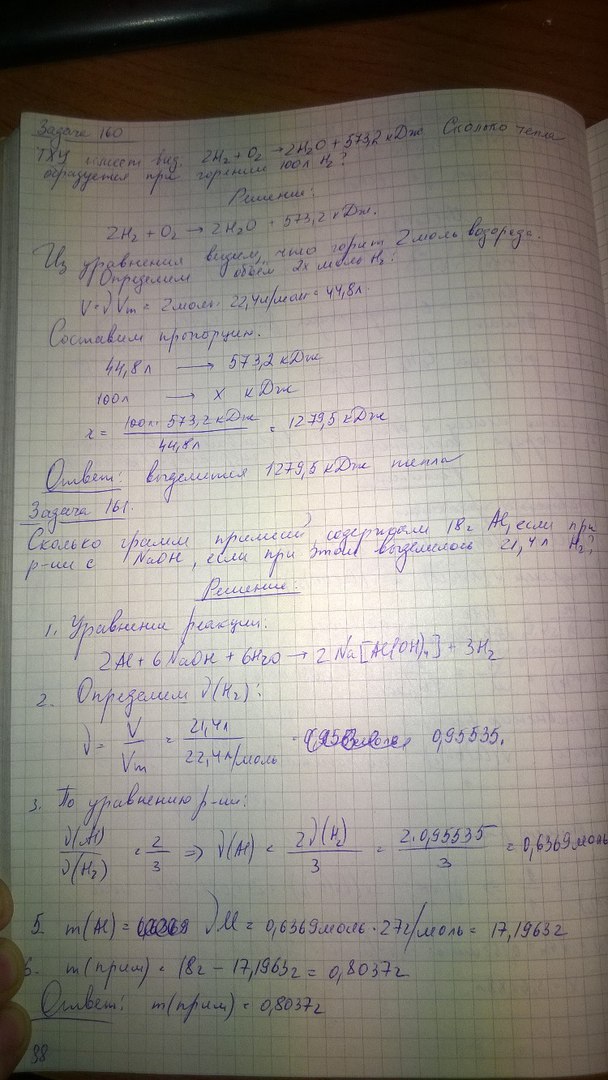 Задача 160
ТХУ имеет вид: 2H₂ + O₂ → 2H₂O + 573,2 кДж Сколько тепла
образуется при горении 100л H₂?
Решение:
2H₂ + O₂ → 2H₂O + 573,2 кДж.
Из уравнения видим, что горит 2 моль водорода.
Определим объём 2х моль H₂:
V = ν Vm = 2моль · 22,4л/моль = 44,8л.
Составим пропорцию.
44,8л → 573,2 кДж
100л → x кДж
x = 100л · 573,2 кДж / 44,8л = 1279,5 кДж
Ответ: выделится 1279,5 кДж тепла
Задача 161.
Сколько грамм примесей, содержали 18г Al, если при
р-ии с NaOH, если при этом выделилось 21,4 л H₂?
Решение:
1. Уравнение реакции:
2Al + 6NaOH + 6H₂O → 2Na[Al(OH)₄] + 3H₂
2. Определим ν(H₂):
ν = V / Vm = 21,4л / 22,4л/моль = 0,95535.
3. По уравнению р-ии:
ν(Al) / ν(H₂) = 2 / 3 ⇒ ν(Al) = 2ν(H₂) / 3 = 2·0,95535 / 3 = 0,6369моль
5. m(Al) = νM = 0,6369моль · 27г/моль = 17,1963г
6. m(прим) = 18г - 17,1963г = 0,8037г
Ответ: m(прим) = 0,8037г
98